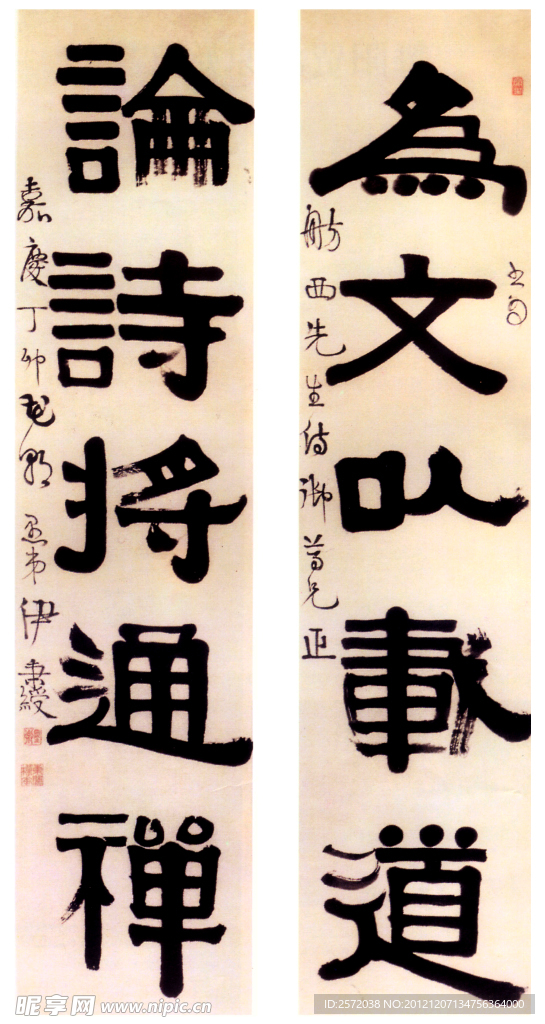 為文以載道
舫西先生侍御尊兄正
論詩將通禪
嘉慶丁卯
愚弟伊秉綬
昵享网 www.nipic.cn
ID:2572038 NO:20121207134756364000